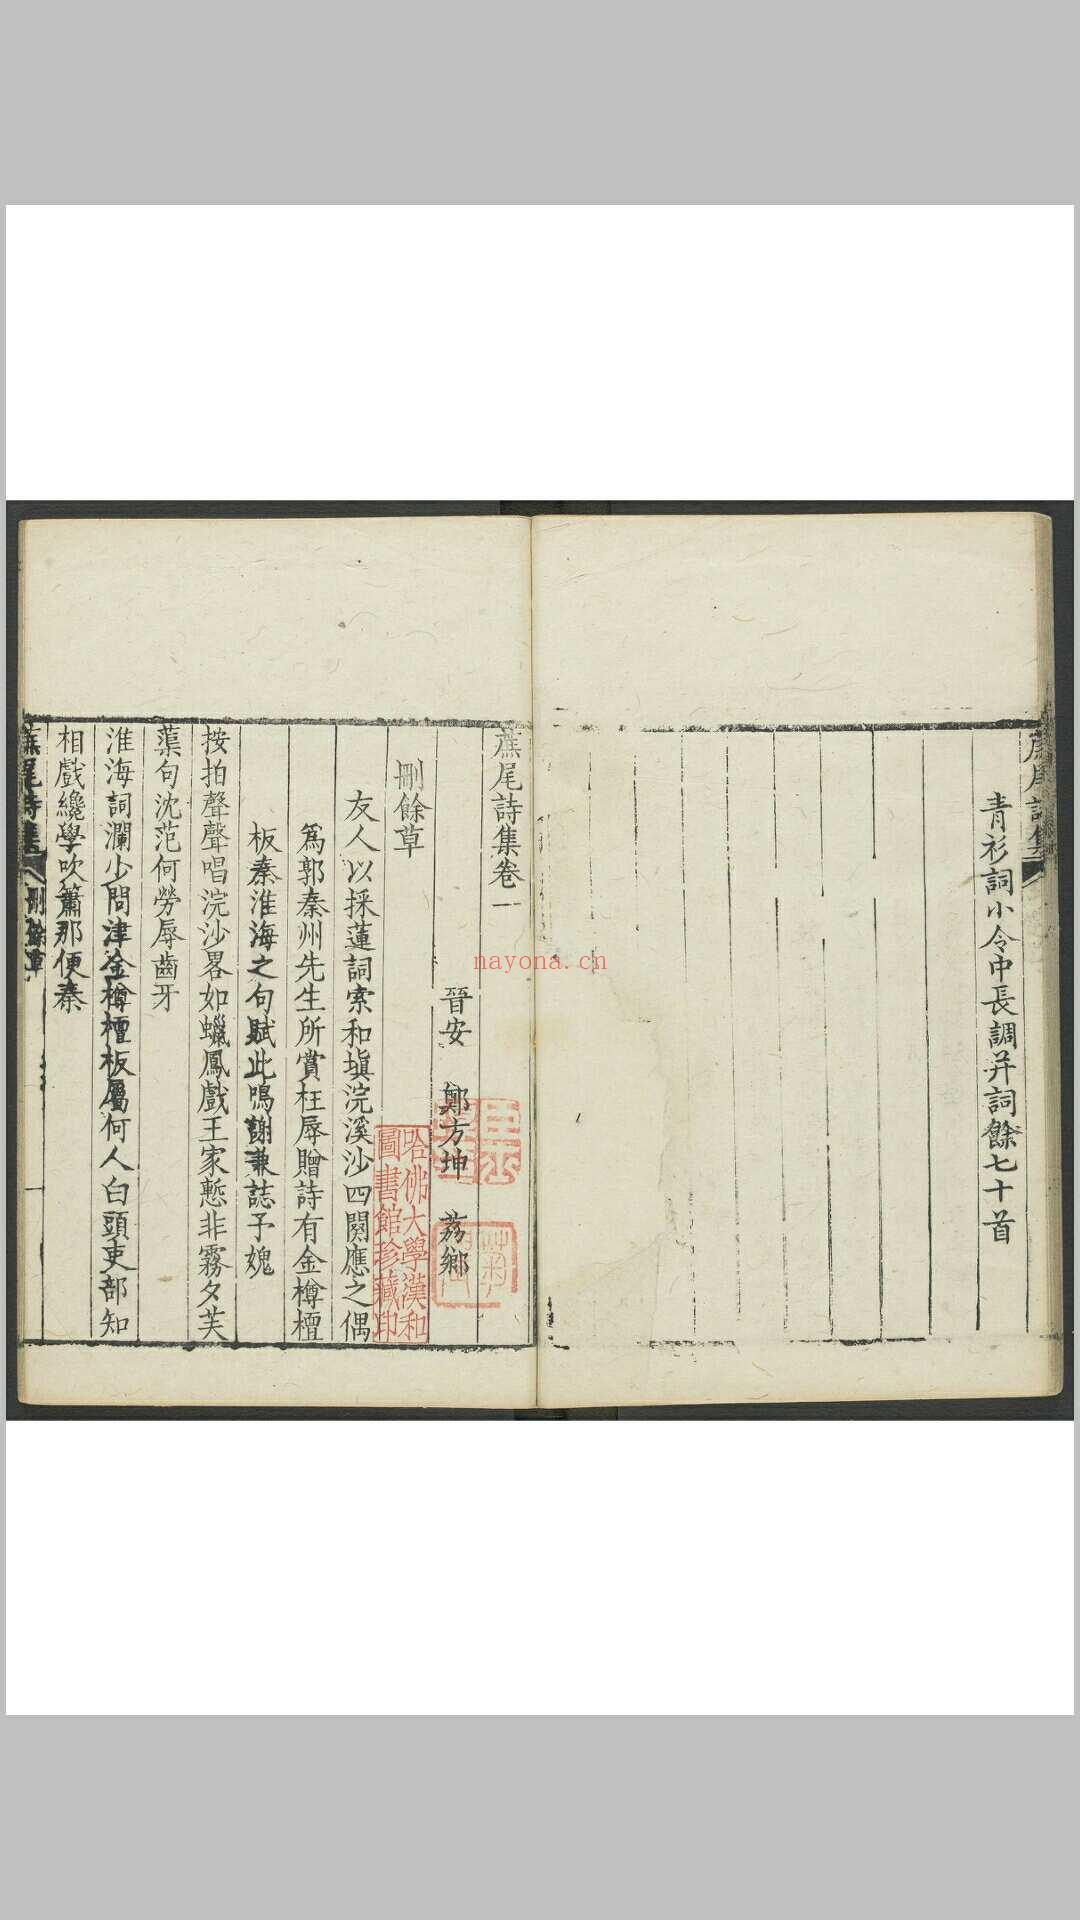 青衫詞小令中長調并詞餘七十首
蔗尾詩集卷一
晉安 鄭方坤 荔鄉
刪餘草
友人以採蓮詞索和塡浣溪沙四闋應之偶
爲郭秦州先生所賞枉辱贈詩有金樽檀
板秦淮海之句賦此鳴謝兼誌予媿
按拍聲聲唱浣沙畧如蠟鳳戲王家慙非霧夕芙
蕖句沈范何勞辱齒牙
淮海詞瀾少問津金樽檀板屬何人白頭吏部知
相戲纔學吹簫那便秦
蔗尾詩集 刪餘草 一
哈佛大學漢和
圖書館珍藏印
nayona.cn